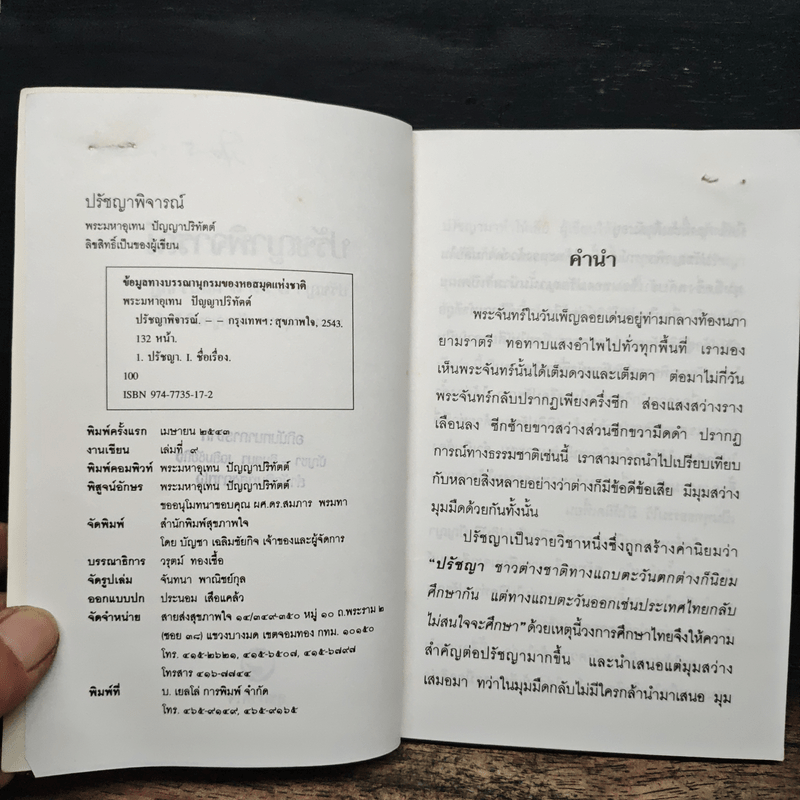 ปรัชญาพิจารณ์
พระมหาอุเทน ปัญญาปริทัตต์
ลิขสิทธิ์เป็นของผู้เขียน
ข้อมูลทางบรรณานุกรมของหอสมุดแห่งชาติ
พระมหาอุเทน ปัญญาปริทัตต์
ปรัชญาพิจารณ์. – – กรุงเทพฯ : สุขภาพใจ, 2543.
132 หน้า.
1. ปรัชญา. I. ชื่อเรื่อง.
100
ISBN 974-7735-17-2
พิมพ์ครั้งแรก เมษายน ๒๕๔๓
งานเขียน เล่มที่ ๙
พิมพ์คอมพิวท์ พระมหาอุเทน ปัญญาปริทัตต์
พิสูจน์อักษร พระมหาอุเทน ปัญญาปริทัตต์
ขออนุโมทนาขอบคุณ ผศ.ดร.สมภาร พรมทา
จัดพิมพ์ สำนักพิมพ์สุขภาพใจ
โดย บัญชา เฉลิมชัยกิจ เจ้าของและผู้จัดการ
บรรณาธิการ วรุตม์ ทองเชื้อ
จัดรูปเล่ม จันทนา พาณิชย์กุล
ออกแบบปก ประนอม เสือแคล้ว
จัดจำหน่าย สายส่งสุขภาพใจ ๑๔/๓๔๙-๓๕๐ หมู่ ๑๐ ถ.พระราม ๒
(ซอย ๓๘) แขวงบางมด เขตจอมทอง กทม. ๑๐๑๕๐
โทร. ๔๑๕-๒๖๒๑, ๔๑๕-๖๕๐๗, ๔๑๕-๖๗๙๗
โทรสาร ๔๑๖-๗๗๔๔
พิมพ์ที่ บ. เยลโล่ การพิมพ์ จำกัด
โทร. ๔๖๕-๙๑๕๙, ๔๖๕-๙๑๖๕
คำนำ
พระจันทร์ในวันเพ็ญลอยเด่นอยู่ท่ามกลางท้องนภา
ยามราตรี ทอทาบแสงอำไพไปทั่วทุกพื้นที่ เรามอง
เห็นพระจันทร์นั้นได้เต็มดวงและเต็มตา ต่อมาไม่กี่วัน
พระจันทร์กลับปรากฏเพียงครึ่งซีก ส่องแสงสว่างราง
เลือนลง ซีกซ้ายขาวสว่างส่วนซีกขวามืดดำ ปรากฏ
การณ์ทางธรรมชาติเช่นนี้ เราสามารถนำไปเปรียบเทียบ
กับหลายสิ่งหลายอย่างว่าต่างก็มีข้อดีข้อเสีย มีมุมสว่าง
มุมมืดด้วยกันทั้งนั้น
ปรัชญาเป็นรายวิชาหนึ่งซึ่งถูกสร้างค่านิยมว่า
“ปรัชญา ชาวต่างชาติทางแถบตะวันตกต่างก็นิยม
ศึกษากัน แต่ทางแถบตะวันออกเช่นประเทศไทยกลับ
ไม่สนใจจะศึกษา” ด้วยเหตุนี้วงการศึกษาไทยจึงให้ความ
สำคัญต่อปรัชญามากขึ้น และนำเสนอแต่มุมสว่าง
เสมอมา ทว่าในมุมมืดกลับไม่มีใครกล้านำมาเสนอ มุม